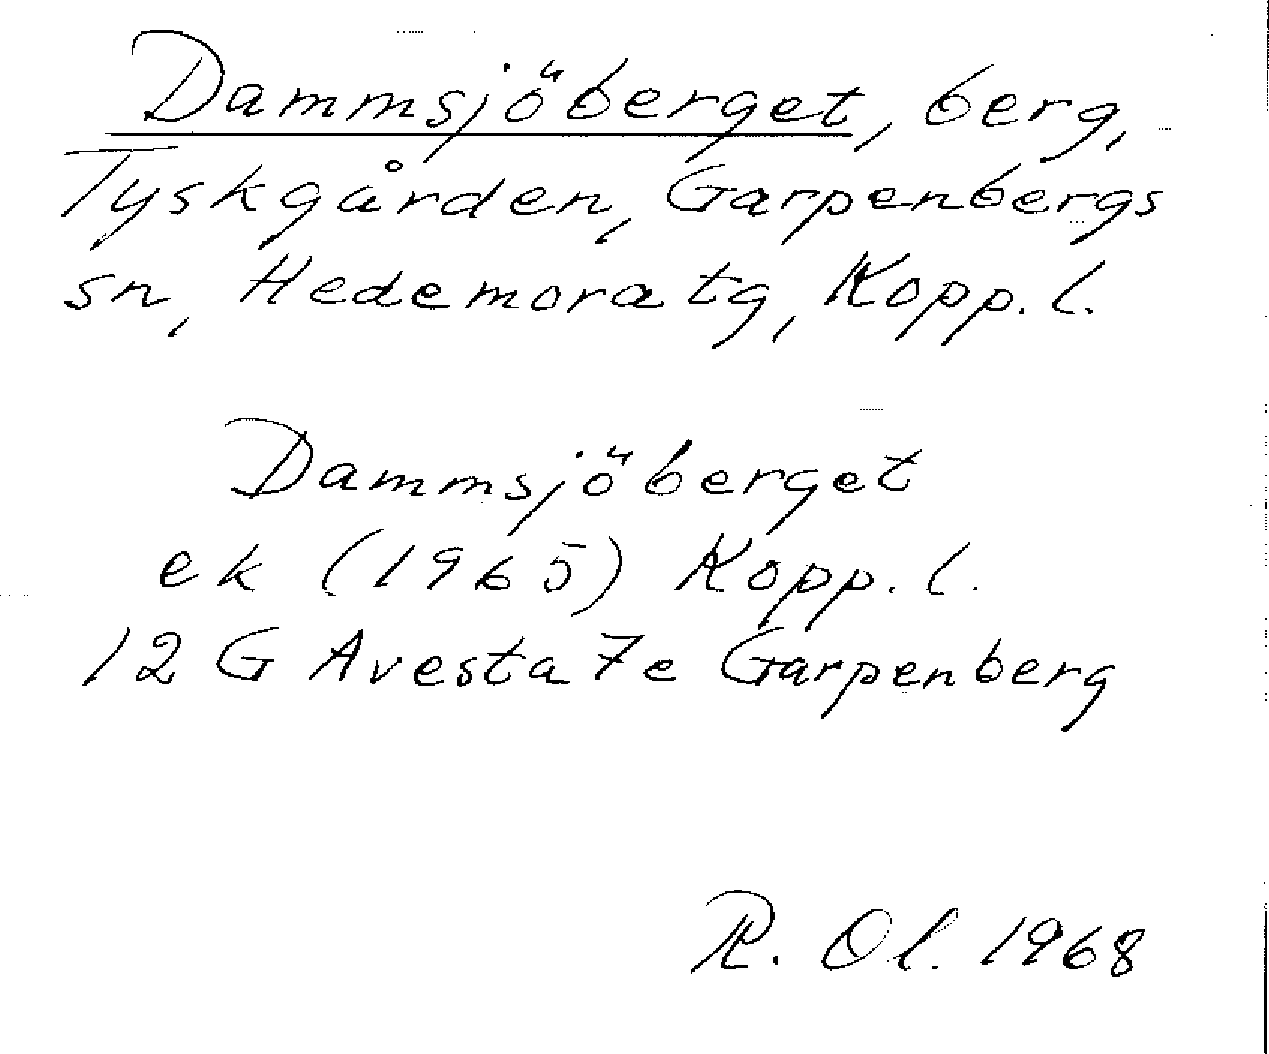 Dammsjöberget, berg,
Tyskgården, Garpenbergs
sn, Hedemora tg, Kopp. l.
Dammsjöberget
ek (1965) Kopp. l.
12 G Avesta 7e Garpenberg
R. Ol. 1968